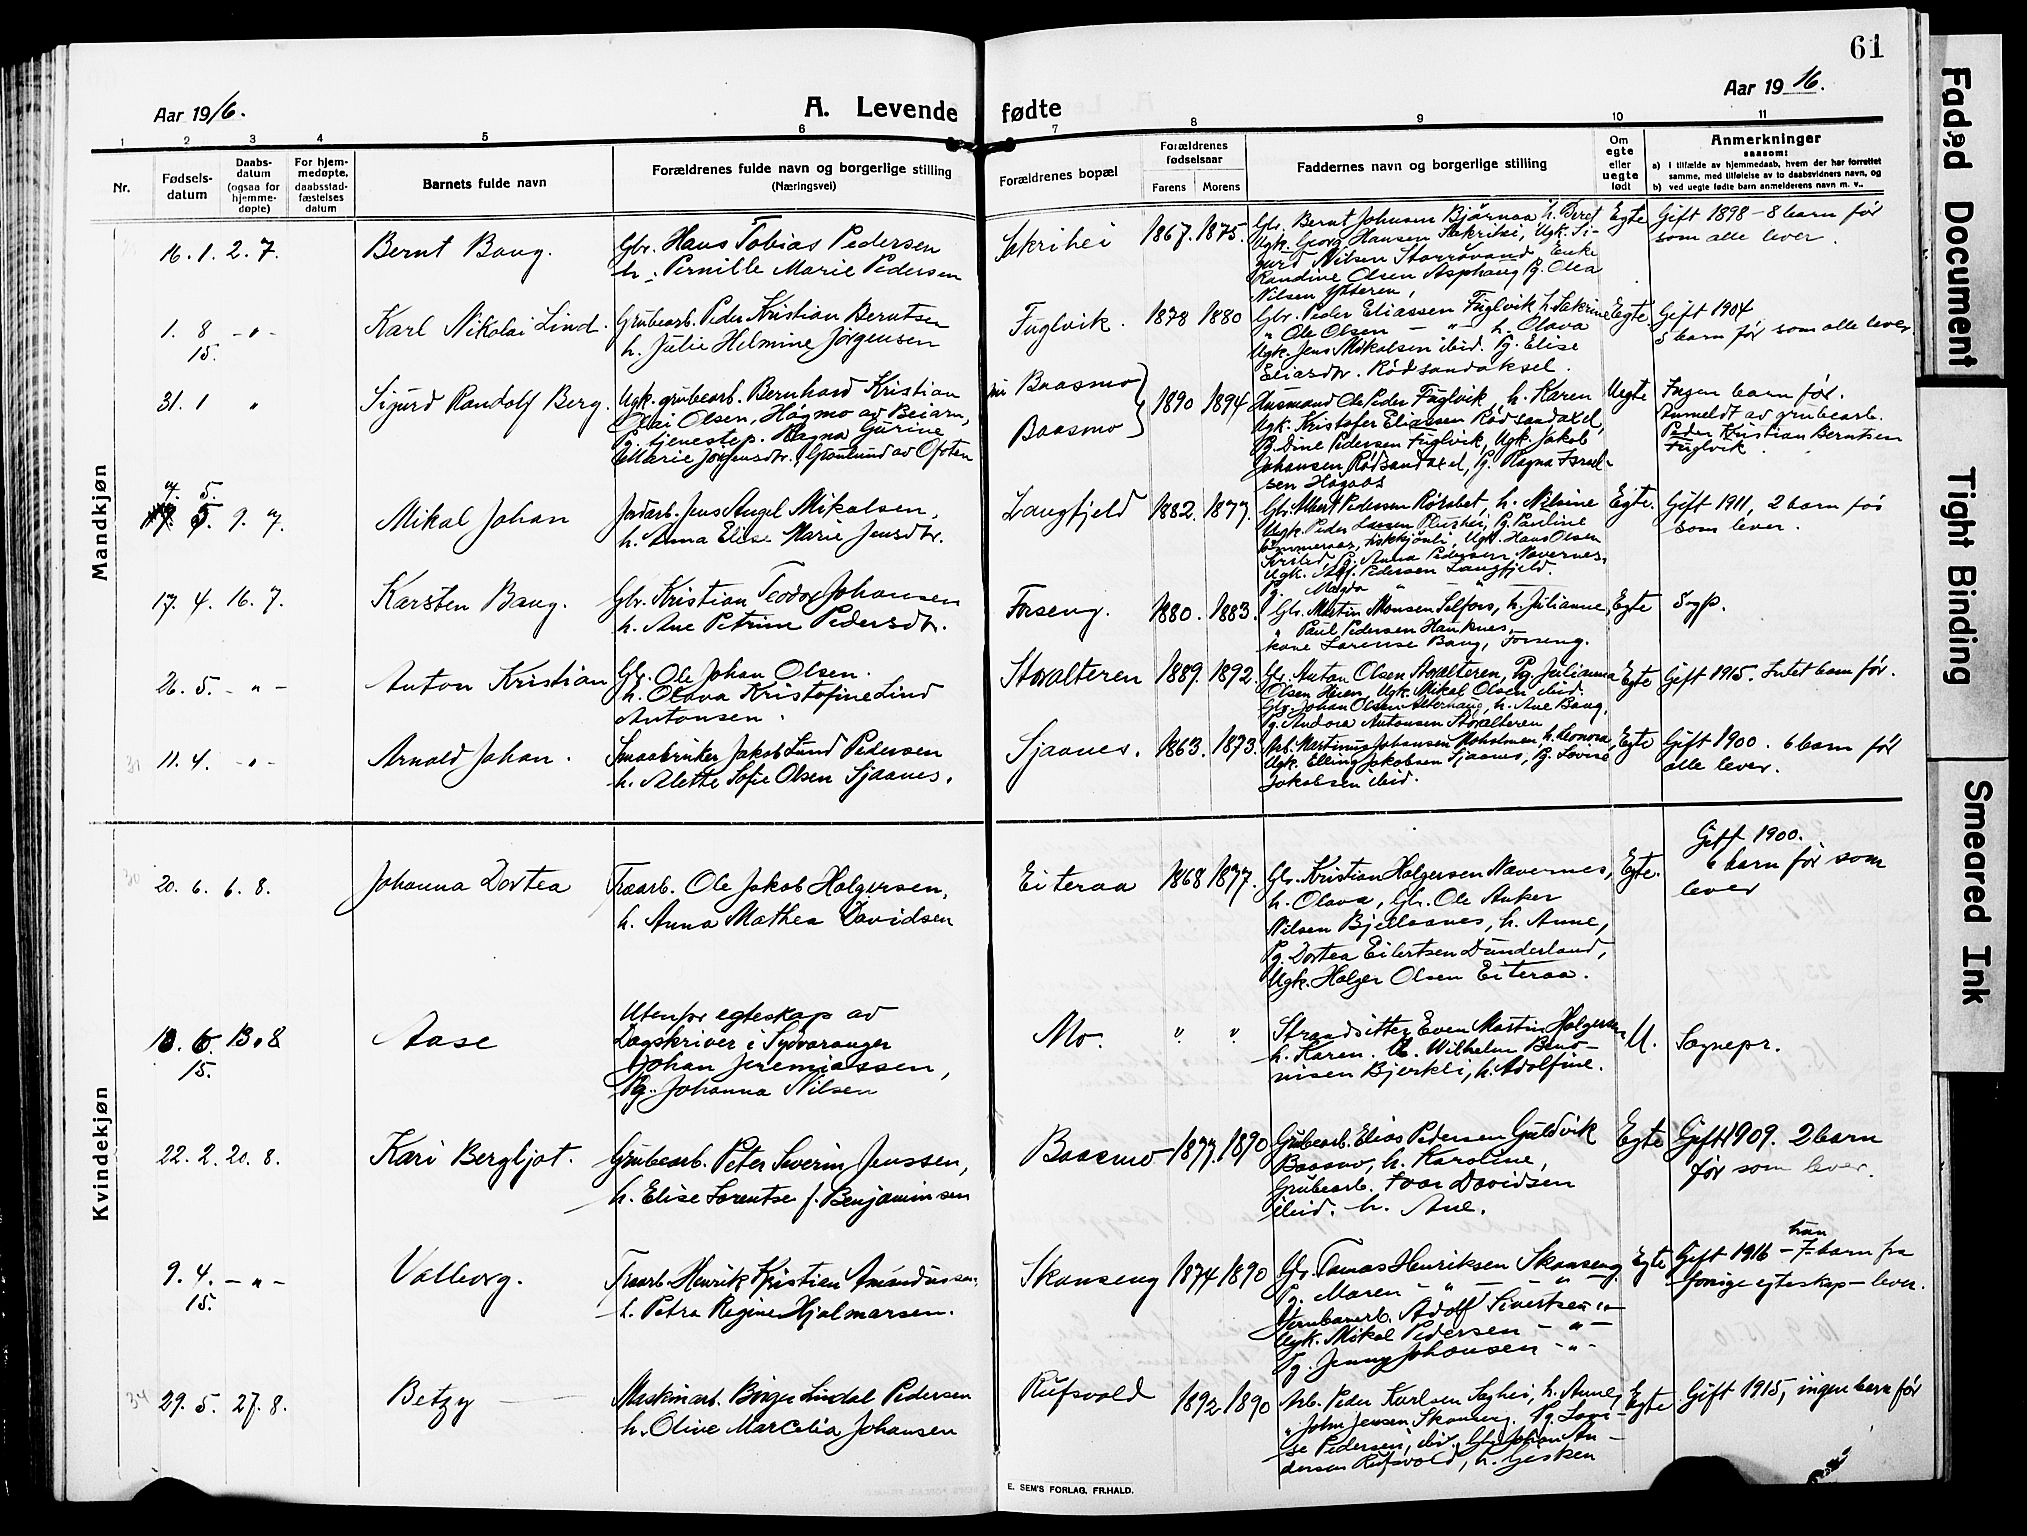 61
Aar 1916.
A. Levende fødte
Aar 1916.
1 2 3 4 5 6 7 8 9 10 11
Nr.
Fødsels-
datum
Daabs-
datum
(ogsaa for
hjemme-
døpte)
For hjem-
medøpte,
daabsstad-
fæstelses
datum
Barnets fulde navn
Forældrenes fulde navn og borgerlige stilling
(Næringsvei)
Forældrenes bopæl
Forældrenes
fødselsaar
Farens Morens
Faddernes navn og borgerlige stilling
Om
egte
eller
uegte
født
Anmerkninger
saasom:
a) I tilfælde av hjemmedaab, hvem der har forrettet
samme, med tilføielse av to daabsvidners navn, og
b) ved uegte fødte barn anmelderens navn m. v..
Mandkjøn
16. 1. 2. 7.
Bernt Baug.
Gbr. Hans Tobias Pedersen
h. Pernille Marie Pedersen
Sakrihei
1867. 1875.
Gbr. Bernt Johnsen Bjørnaa h. Beret
Ugk. Georg Hansen Sakrihei, Ugk. Si-
gurd Nilsen Storrøvand, Enke
Randine Olsen Asphaug, Pg. Olea
Nilsen Ytteren,
Egte
Gift 1898 - 8 barn før
som alle lever.
1. 8 - " -
15.
Karl Nikolai Lind.
Grubearb. Peder Kristian Berntsen
h. Julie Helmine Jørgensen
Fuglvik.
1878 1880
Gbr. Peder Eliassen Fuglvik h. Sakrine
" Ole Olsen - " - h. Olava
Ugk. Jens Mikalsen ibid. Pg. Elise
Eliasdtr. Rødsandaksel.
Egte.
Gift 1904
5 barn før som alle lever
31. 1 "
Sigurd Randolf Berg.
Ugk. grubearb. Bernhard Kristian
Olai Olsen, Høgmo av Beiarn,
Pg. tjenestep. Ragna Gurine
Marie Jørgensdtr. Grønlund av Ofoten
Baasmo
Baasmo
1890 1894
Husmand Ole Peder Fuglvik h. Karen
Ugk. Kristofer Eliassen Rødsandaxel,
Pg. Dine Pedersen Fuglvik, Ugk. Jakob
Johansen Rødsandaxel, Pg. Ragna Israel-
sen Høgaas
Uegte
Ingen barn før.
Anmeldt av grubearb.
Peder Kristian Berntsen
Fuglvik.
7. 5. 9. 7.
Mikal Johan
Jordarb. Jens Angel Mikalsen,
h. Anna Elise Marie Jensdtr.
Langfjeld
1882. 1877.
Gbr. Albert Pedersen Røssbet, h. Nilsine
Ugk. Peder Larsen Plurhei, Pg. Pauline
Ugk. Hans Olsen
Pg. Anna Pedersen Navernes,
Ugk. Alf. Pedersen Langfjeld.
Pg. Magda " "
Egte.
Gift 1911, 2 barn før
som lever.
17. 4. 16. 7.
Karsten Baug.
Gbr. Kristian Teodor Johansen
h. Ane Petrine Pedersdtr.
Forseng.
1880. 1883.
Gbr. Martin Monsen Selfors, h. Julianne,
" Paul Pedersen Hauknes,
kone Lorense Baug, Forseng.
Egte
Sogp.
26. 5. - " -
Anton Kristian
Gbr. Ole Johan Olsen.
h. Olava Kristofine Lind
Antonsen.
Storalteren
1889. 1892.
Gbr. Anton Olsen Storalteren, Pg. Julianna
Olsen Heien, Ugk. Mikal Olsen ibid.
Gbr. Johan Olsen Alterhaug, h. Ane Baug,
Pg. Andora Antonsen Storalteren
Egte
Gift 1915. Intet barn før.
31
11. 4. - " -
Arnold Johan.
Smaabruker Jakob Lund Pedersen
h. Alette Sofie Olsen Sjaanes.
Sjaanes.
1863. 1873.
Arb. Martinus Johansen Moholmen h. Leonora,
Ugk. Elling Jakobsen Sjaanes, Pg. Lovise
Jakobsen ibid.
Egte
Gift 1900. 6 barn før
alle lever.
Kvindekjøn
30
20. 6. 6. 8.
Johanna Dortea
Træarb. Ole Jakob Holgersen,
h. Anna Mathea Davidsen
Eiteraa
1868 1877.
Gbr. Kristian Holgersen Navernes,
h. Olava, Gbr. Ole Anker
Nilsen Bjellaanes, h. Anne,
Pg. Dortea Eilertsen Dunderland,
Ugk. Holger Olsen Eiteraa.
Egte.
Gift 1900.
6 barn før som
lever
13. 6. 13. 8
15.
Aase
Utenfor egteskap av
Dagskriver i Sydvaranger
Johan Jeremiassen,
Pg. Johanna Nilsen
Mo.
" "
Strandsitter Even Martin Holgersen
h. Karen. Wilhelm Beno-
nisen Bjerkli, h. Adolfine.
U.
Sognepr.
22. 2. 20. 8.
Kari Bergljot.
Grubearb. Peter Severin Jenssen,
h. Elise Lorentse f. Benjaminsen
Baasmo
1877. 1890
Grubearb. Elias Pedersen Guldvik
Baasmo, h. Karoline,
Grubearb. Ivar Davidsen
ibid. h. Ane.
Egte
Gift 1909. 2 barn
før som lever.
9. 4. - " -
15.
Valborg.
Træarb. Henrik Kristian Amundsen,
h. Petra Regine Hjalmarsen.
Skanseng
1874 1890
Gbr. Tomas Henriksen Skonseng
Pg. Maren " - " -
Jernbanearb. Adolf Sivertsen - " -
Ugk. Mikal Pedersen - " -
Pg. Jenny Johansen - " -
Egte
Gift 1916 - han 7 barn fra
forrige egteskap - lever.
34
29. 5. 27. 8.
Betzy
Maskinarb. Birger Lindal Pedersen
h. Olive Marcelia Johansen
Rufsvold
1892 1890
Arb. Peder Karlsen Saghei, h. Anne,
" John Jensen Skonseng. Pg. Lovi-
se Pedersen, ibid. Gbr. Johan An-
dersen Rufsvold, h. Gjesken
Egte
Gift 1915, ingen barn før
E. SEM'S FORLAG, FR.HALD.
Faded Document
Tight Binding
Smeared Ink